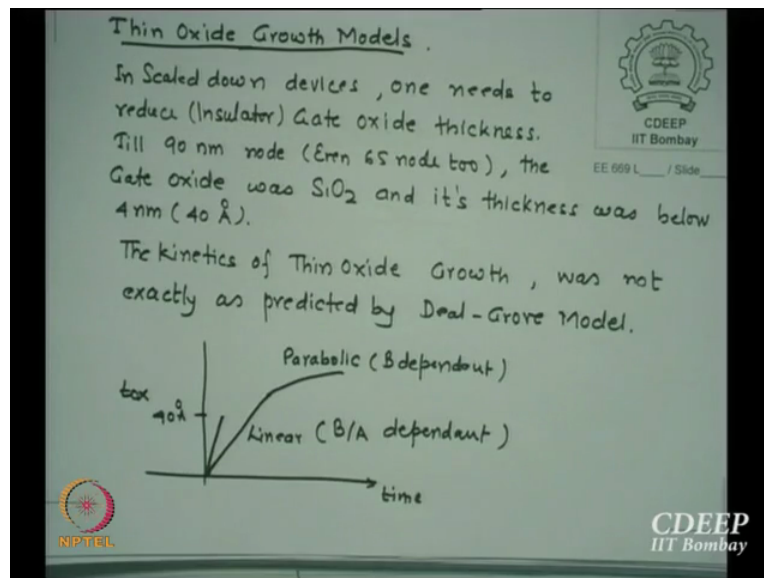 Thin Oxide Growth Models.
In Scaled down devices, one needs to
reduce (Insulator) Gate oxide thickness.
Till 90 nm node (Even 65 node too), the
Gate oxide was SiO2 and it's thickness was below
4 nm (40 Å).
The kinetics of Thin Oxide Growth, was not
exactly as predicted by Deal-Grove Model.
Parabolic (B dependent)
tox
40Å
Linear (B/A dependant)
time
CDEEP
IIT Bombay
EE 669 L____ / Slide____
NPTEL
CDEEP
IIT Bombay